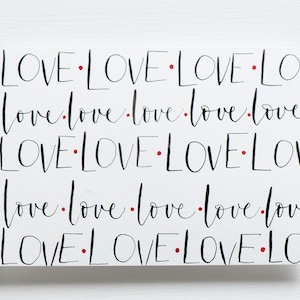 LOVE · LOVE · LOVE · LO
love · love · love · love · love
LOVE · LOVE · LOVE · LOV
love · love · love · love · lov
LOVE · LOVE · LOVE · LO